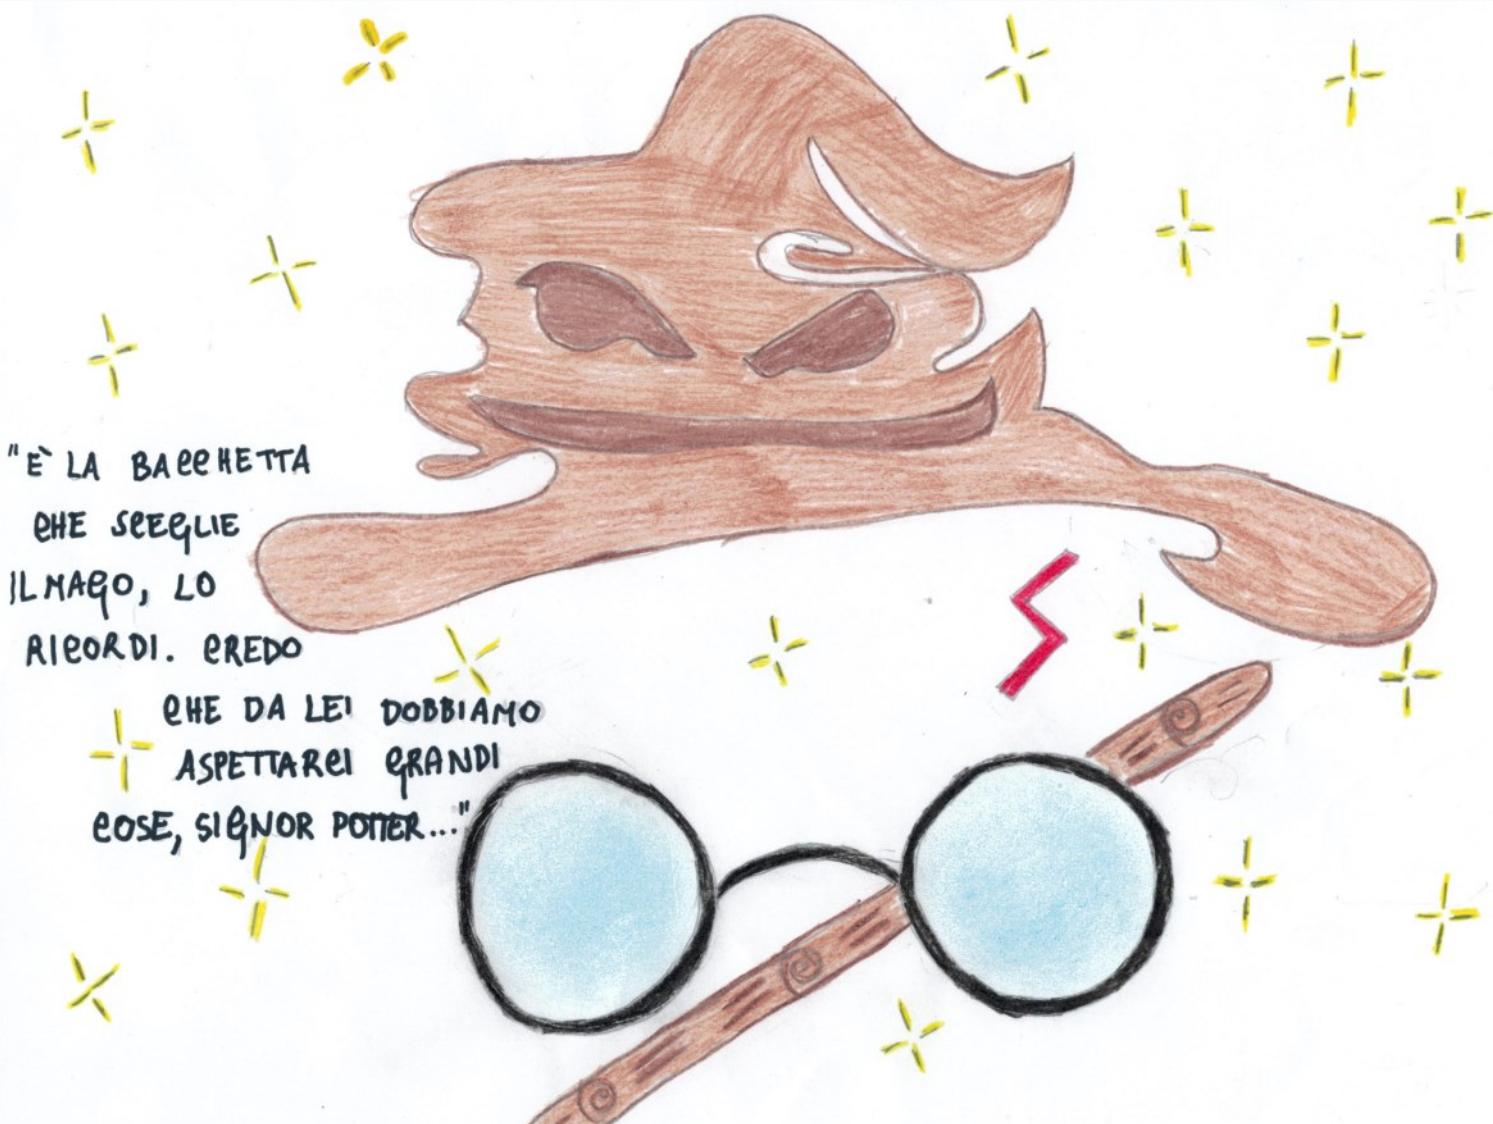 "È LA BACCHETTA
CHE SCEGLIE
IL MAGO, LO
RICORDI. CREDO
CHE DA LEI DOBBIAMO
ASPETTARCI GRANDI
COSE, SIGNOR POTTER..."